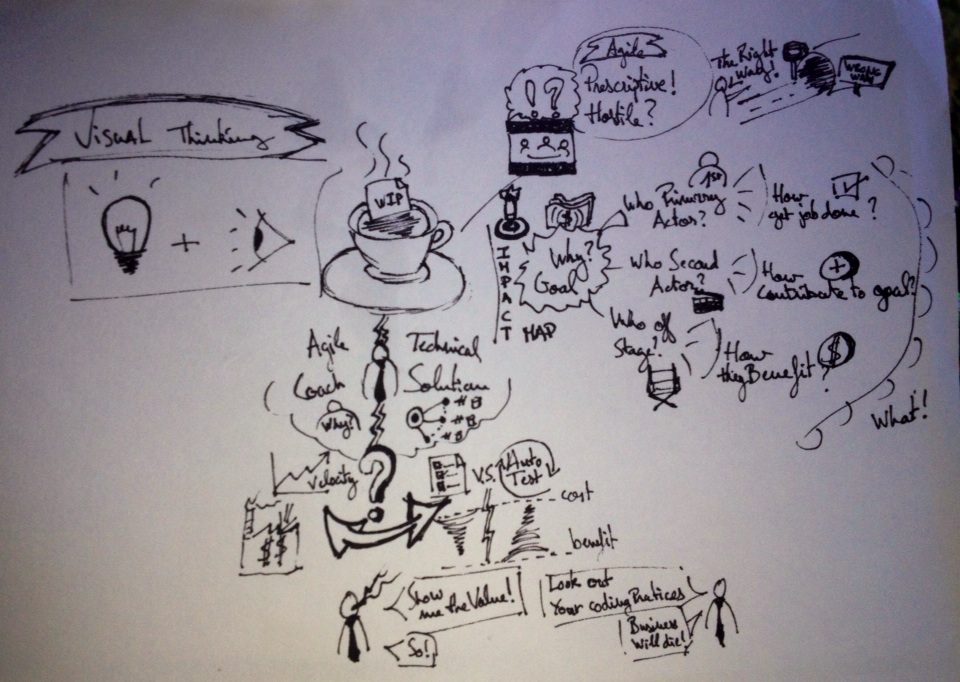 Visual Thinking
WIP
! ?
Agile
Prescriptive!
Hostile?
The Right
Way!
WRONG
WAY
IMPACT
MAP
$
Why?
Goal
Who Primary
Actor?
1ST
How
get job done?
Who Second
Actor?
How
Contribute to goal?
Who off
Stage?
How
they Benefit?
$
What!
Agile
Coach
Why?
Technical
Solution
Velocity
?
V.S.
Auto
Test
cost
benefit
$ $
Show
me the Value!
So!
Look out
Your coding Pratices!
Business
Will die!